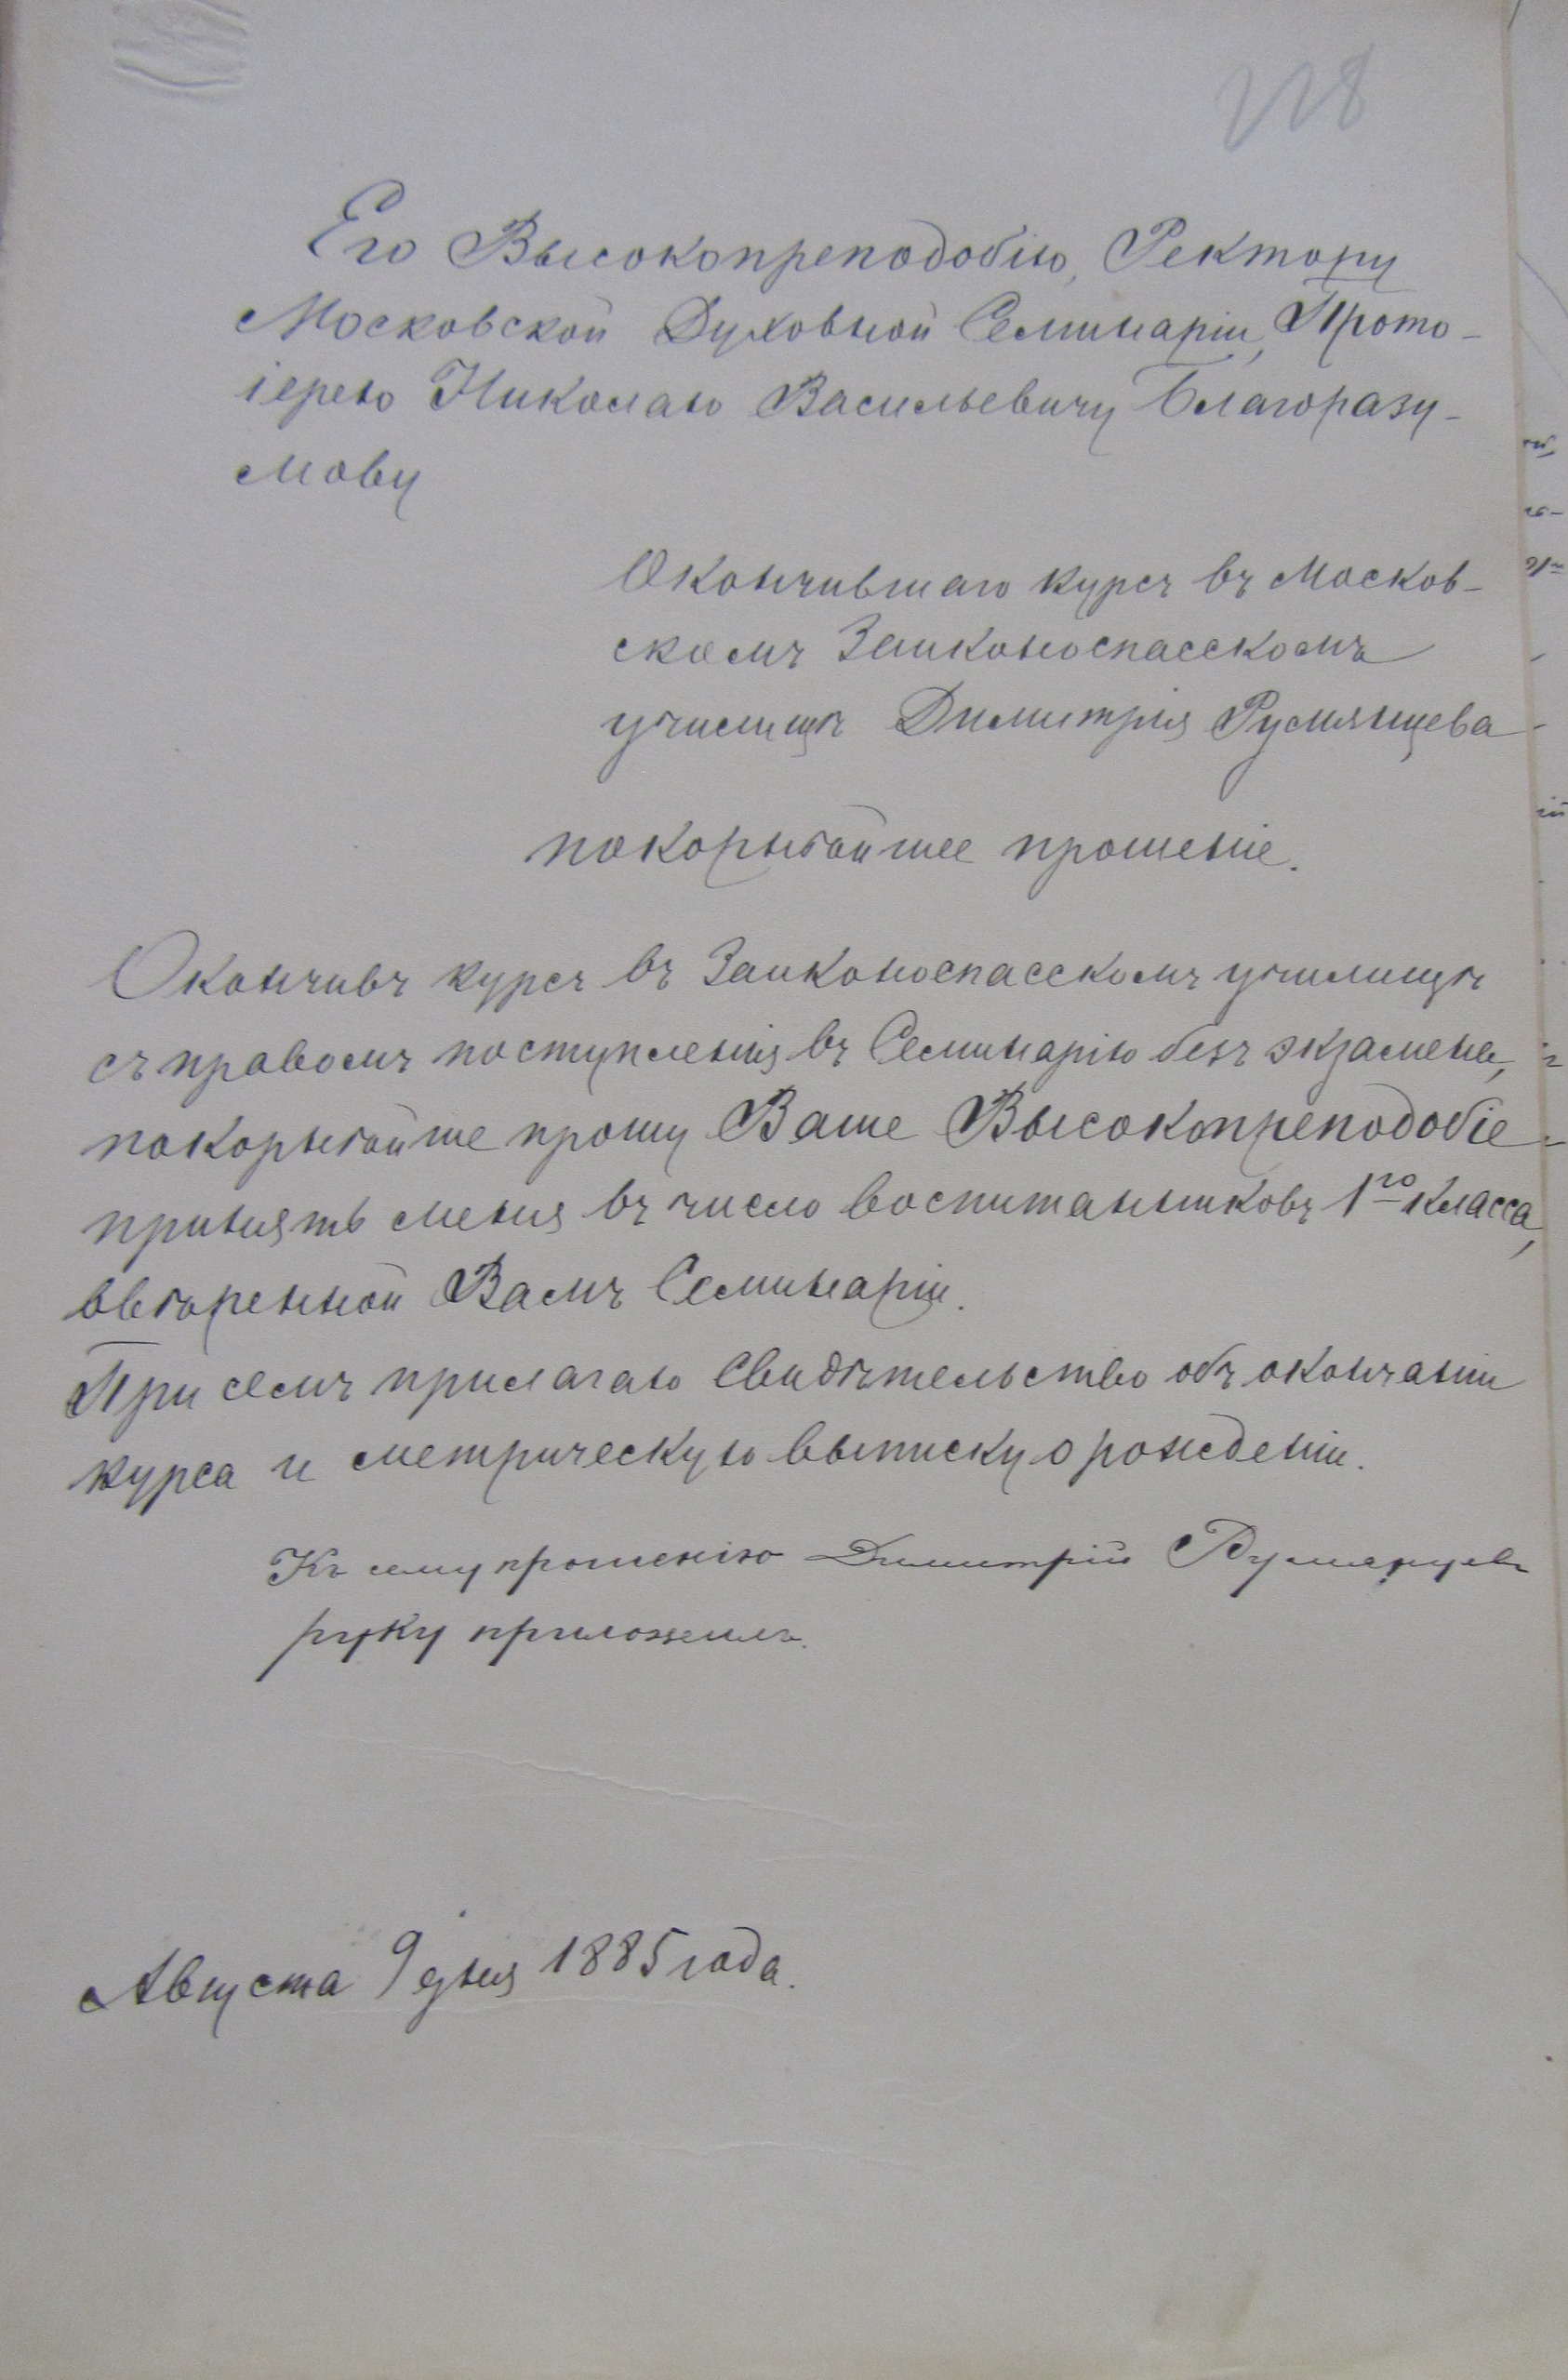 Его Высокопреподобію, Ректору
Московской Духовной Семинаріи, Прото-
іерею Николаю Васильевичу Благоразу-
мову
Окончившаго курсъ въ Москов-
скомъ Заиконоспасскомъ
училищѣ Димитрія Румянцева
покорнѣйшее прошеніе.
Окончивъ курсъ въ Заиконоспасскомъ училищѣ
съ правомъ поступленія въ Семинарію безъ экзамена,
покорнѣйше прошу Ваше Высокопреподобіе
принять меня въ число воспитанниковъ 1го класса,
ввѣренной Вамъ Семинаріи.
При семъ прилагаю Свидѣтельство объ окончаніи
курса и метрическую выписку о рожденіи.
Къ сему прошенію Димитрій Румянцевъ
руку приложилъ.
Августа 9 дня 1885 года.